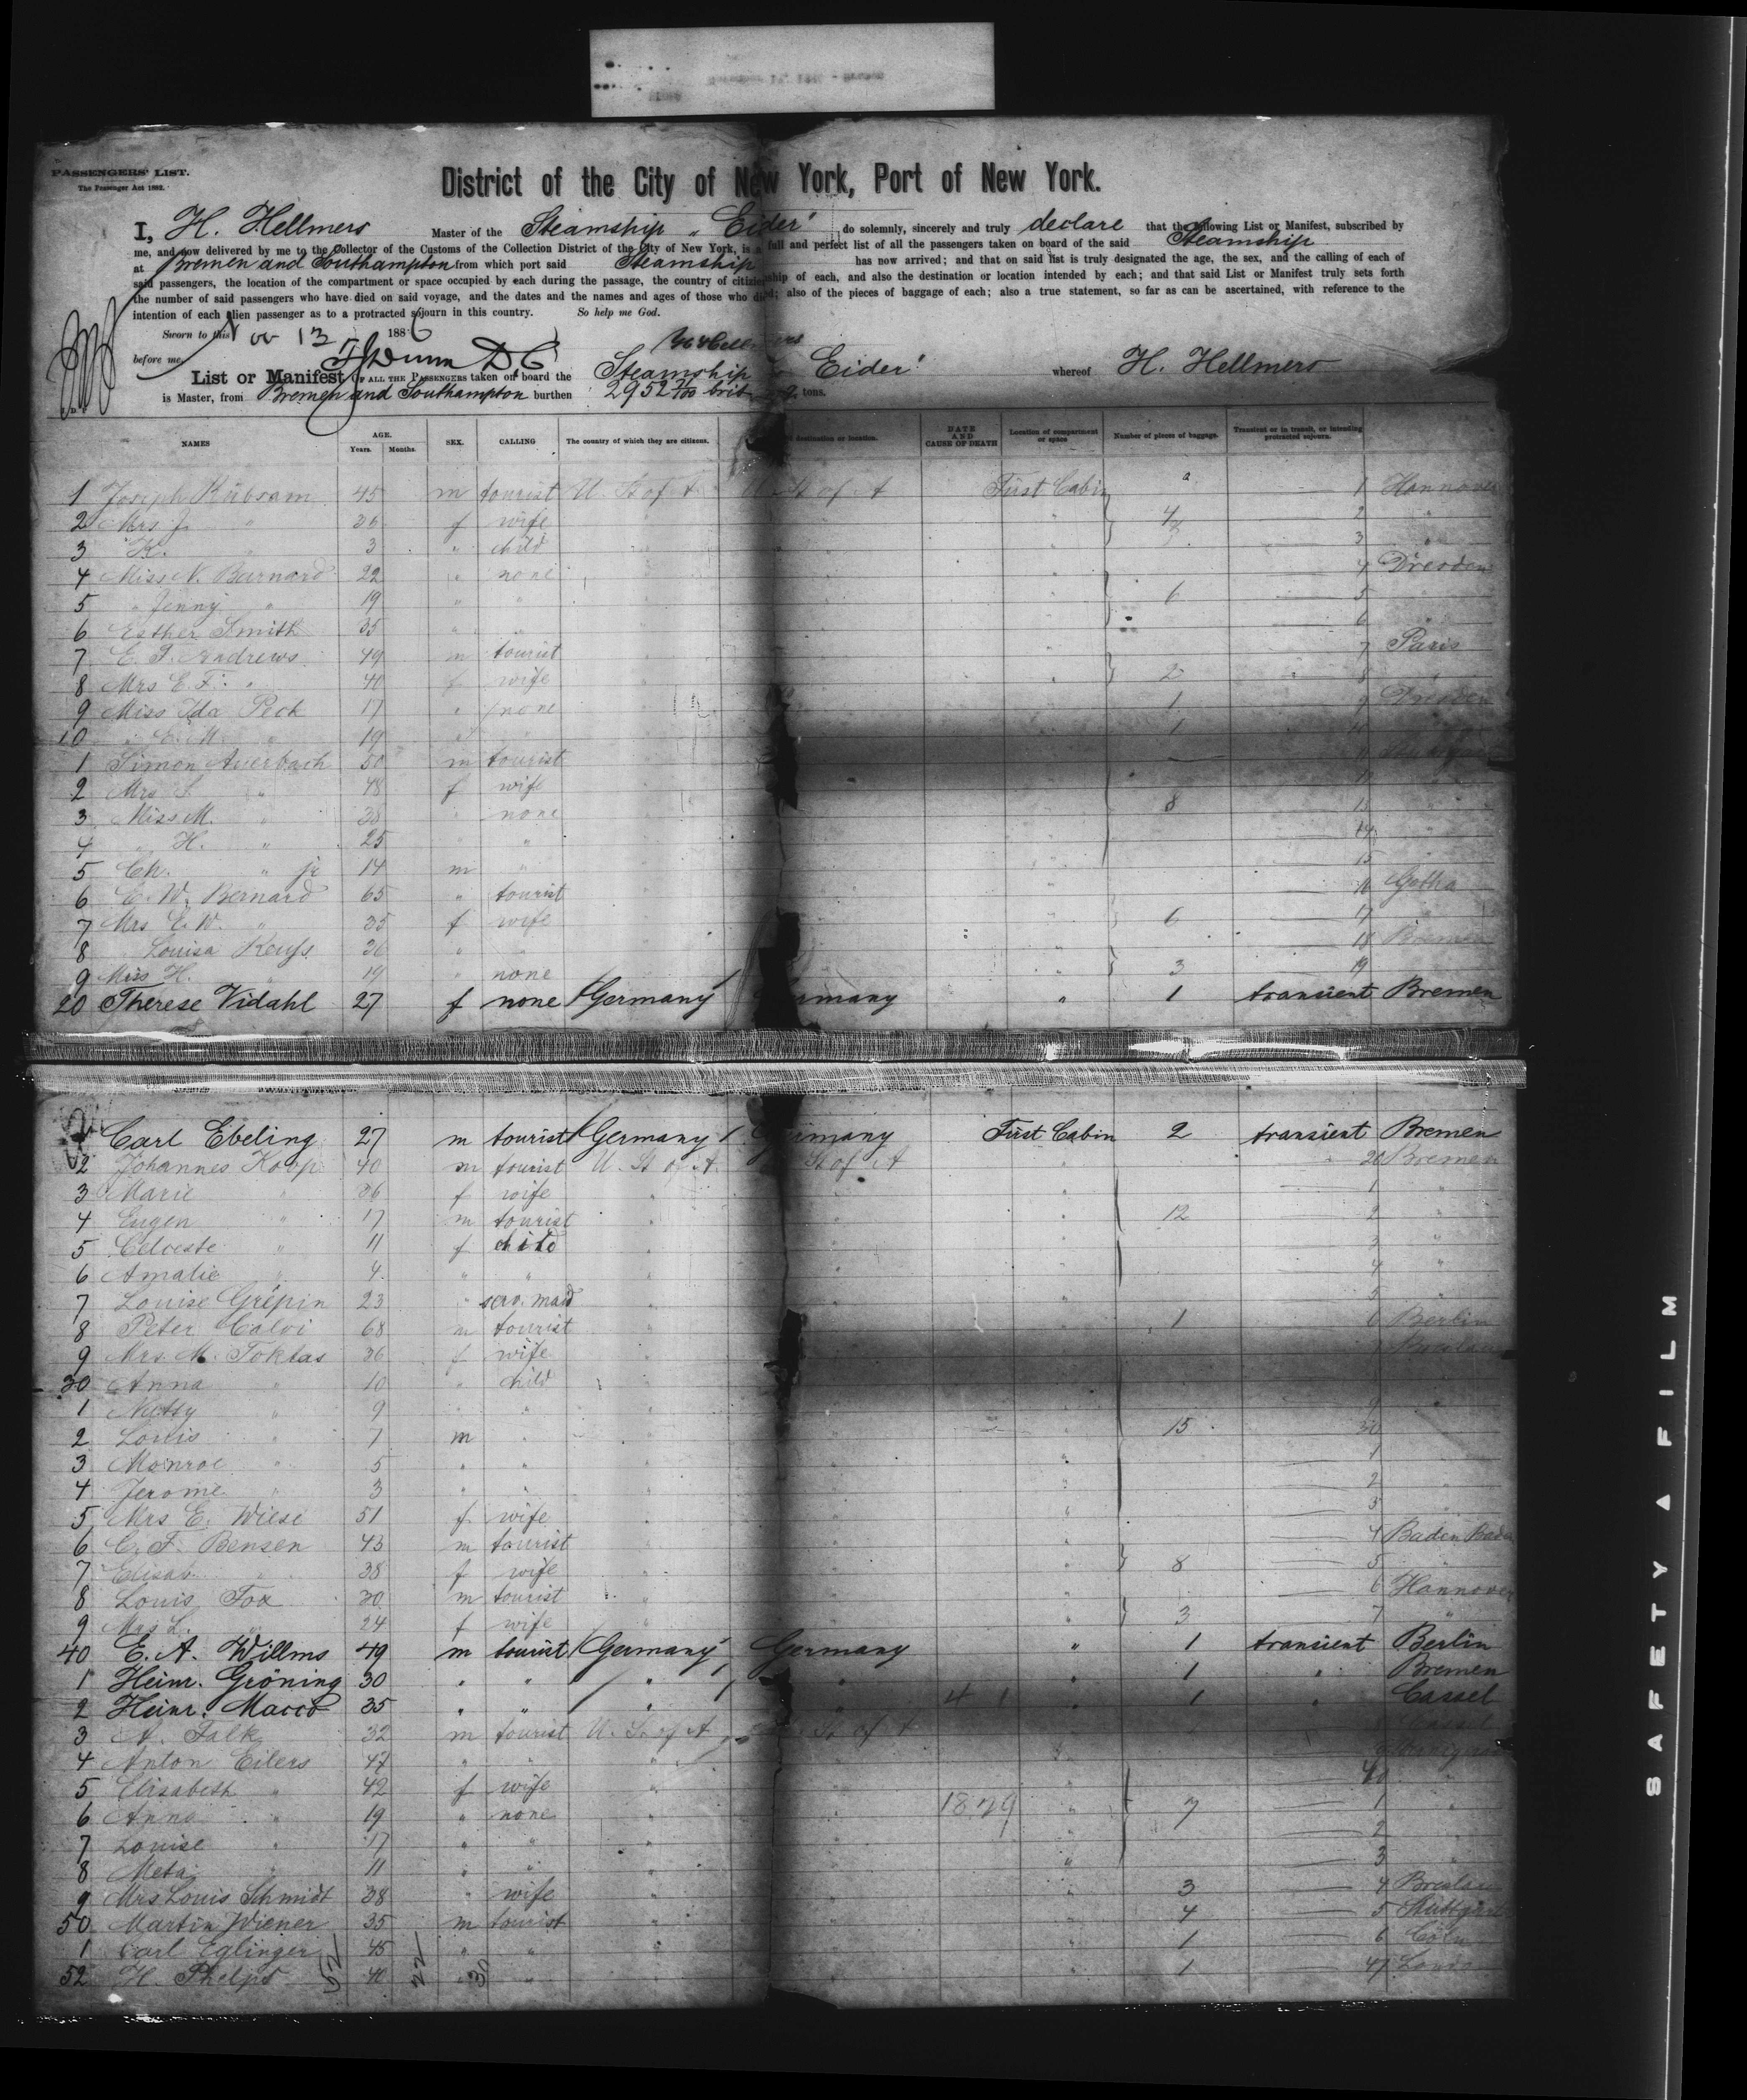 PASSENGERS' LIST.
The Passenger Act 1882.
District of the City of New York, Port of New York.
I, H. Hellmers Master of the Steamship „ Eider' do solemnly, sincerely and truly declare that the following List or Manifest, subscribed by
me, and now delivered by me to the Collector of the Customs of the Collection District of the City of New York, is a full and perfect list of all the passengers taken on board of the said Steamship
at Bremen and Southampton from which port said Steamship has now arrived; and that on said list is truly designated the age, the sex, and the calling of each of
said passengers, the location of the compartment or space occupied by each during the passage, the country of citizenship of each, and also the destination or location intended by each; and that said List or Manifest truly sets forth
the number of said passengers who have died on said voyage, and the dates and the names and ages of those who died; also of the pieces of baggage of each; also a true statement, so far as can be ascertained, with reference to the
intention of each alien passenger as to a protracted sojourn in this country. So help me God.
Sworn to this Nov 13 1886
before me
List or Manifest OF ALL THE PASSENGERS taken on board the Steamship Eider' whereof H. Hellmers
is Master, from Bremen and Southampton burthen 2952 tons.
NAMES AGE. Years. Months. SEX. CALLING The country of which they are citizens. destination or location. DATE AND CAUSE OF DEATH Location of compartment or space Number of pieces of baggage. Transient or in transit, or intending protracted sojourn.
1 Joseph Rübsam 45 m tourist U. St of A U. St of A First Cabin 1 Hannover
2 Mrs J. " 36 f wife " 4 2 "
3 K. " 3 " child " 3 "
4 Miss N. Barnard 22 " none 4 Dresden
5 " Jenny " 19 " " 6 5
6 Esther Smith 35 " " 6
7 E. F. Andrews 49 m tourist 7 Paris
8 Mrs E. F. " 40 f wife 2 8
9 Miss Ida Peck 17 " none 1 9 Dresden
10 " E. M. " 19 " 1
1 Simon Auerbach 50 m tourist
2 Mrs S. " 48 f wife
3 Miss M. " 38 " none 8 13 "
4 " H. " 25 " " 14 "
5 Ch. " jr 14 m " 15
6 E. W. Bernard 65 " tourist 16 Gotha
7 Mrs E. W. " 35 f wife 6 17
8 Louisa Reuss 36 " " 18 Bremen
9 Miss H. " 19 " none 3 19
20 Therese Vidahl 27 f none Germany Germany " 1 transient Bremen
Carl Ebeling 27 m tourist Germany Germany First Cabin 2 transient Bremen
2 Johannes Koop 40 m tourist U. St of A. St of A 20 Bremen
3 Marie " 36 f wife " 1 "
4 Eugen " 17 m tourist " 12 2 "
5 Celeste " 11 f child 3 "
6 Amalie " 4 " " 4 "
7 Louise Grépin 23 " serv. maid 5 "
8 Peter Calvi 68 m tourist 1 6 Berlin
9 Mrs. M. Toklas 36 f wife Breslau
30 Anna " 10 " child
1 " 9 " "
2 Louis " 7 m " 15 30
3 Monroe " 5 " " 1
4 Jerome " 3 " " 2
5 Mrs E. Wiese 51 f wife 3
6 C. F. Bensen 43 m tourist 4 Baden Baden
7 Elisab. " 38 f wife 8 5 "
8 Louis Fox 30 m tourist 6 Hannover
9 Mrs L. " 24 f wife 3 7 "
40 E. A. Willms 49 m tourist Germany Germany " 1 transient Berlin
1 Heinr. Gröning 30 " " " " 1 " Bremen
2 Heinr. Macco 35 " " " " 1 " Cassel
3 A. Falk 32 m tourist U. St of A St of A
4 Anton Eilers 47 " " "
5 Elisabeth " 42 f wife " 40
6 Anna " 19 " none " 1879 7 1 "
7 Louise " 17 " " " 2 "
8 Meta " 11 " " " 3 "
9 Mrs Louis Schmidt 38 " wife " 3 4 Breslau
50 Martin Wiener 35 m tourist " 4 5 Stuttgart
1 Carl Eglinger 45 " " " 1 6 Cöln
52 H. Phelps 40 " " 1 47 London
52 22 30
SAFETY FILM